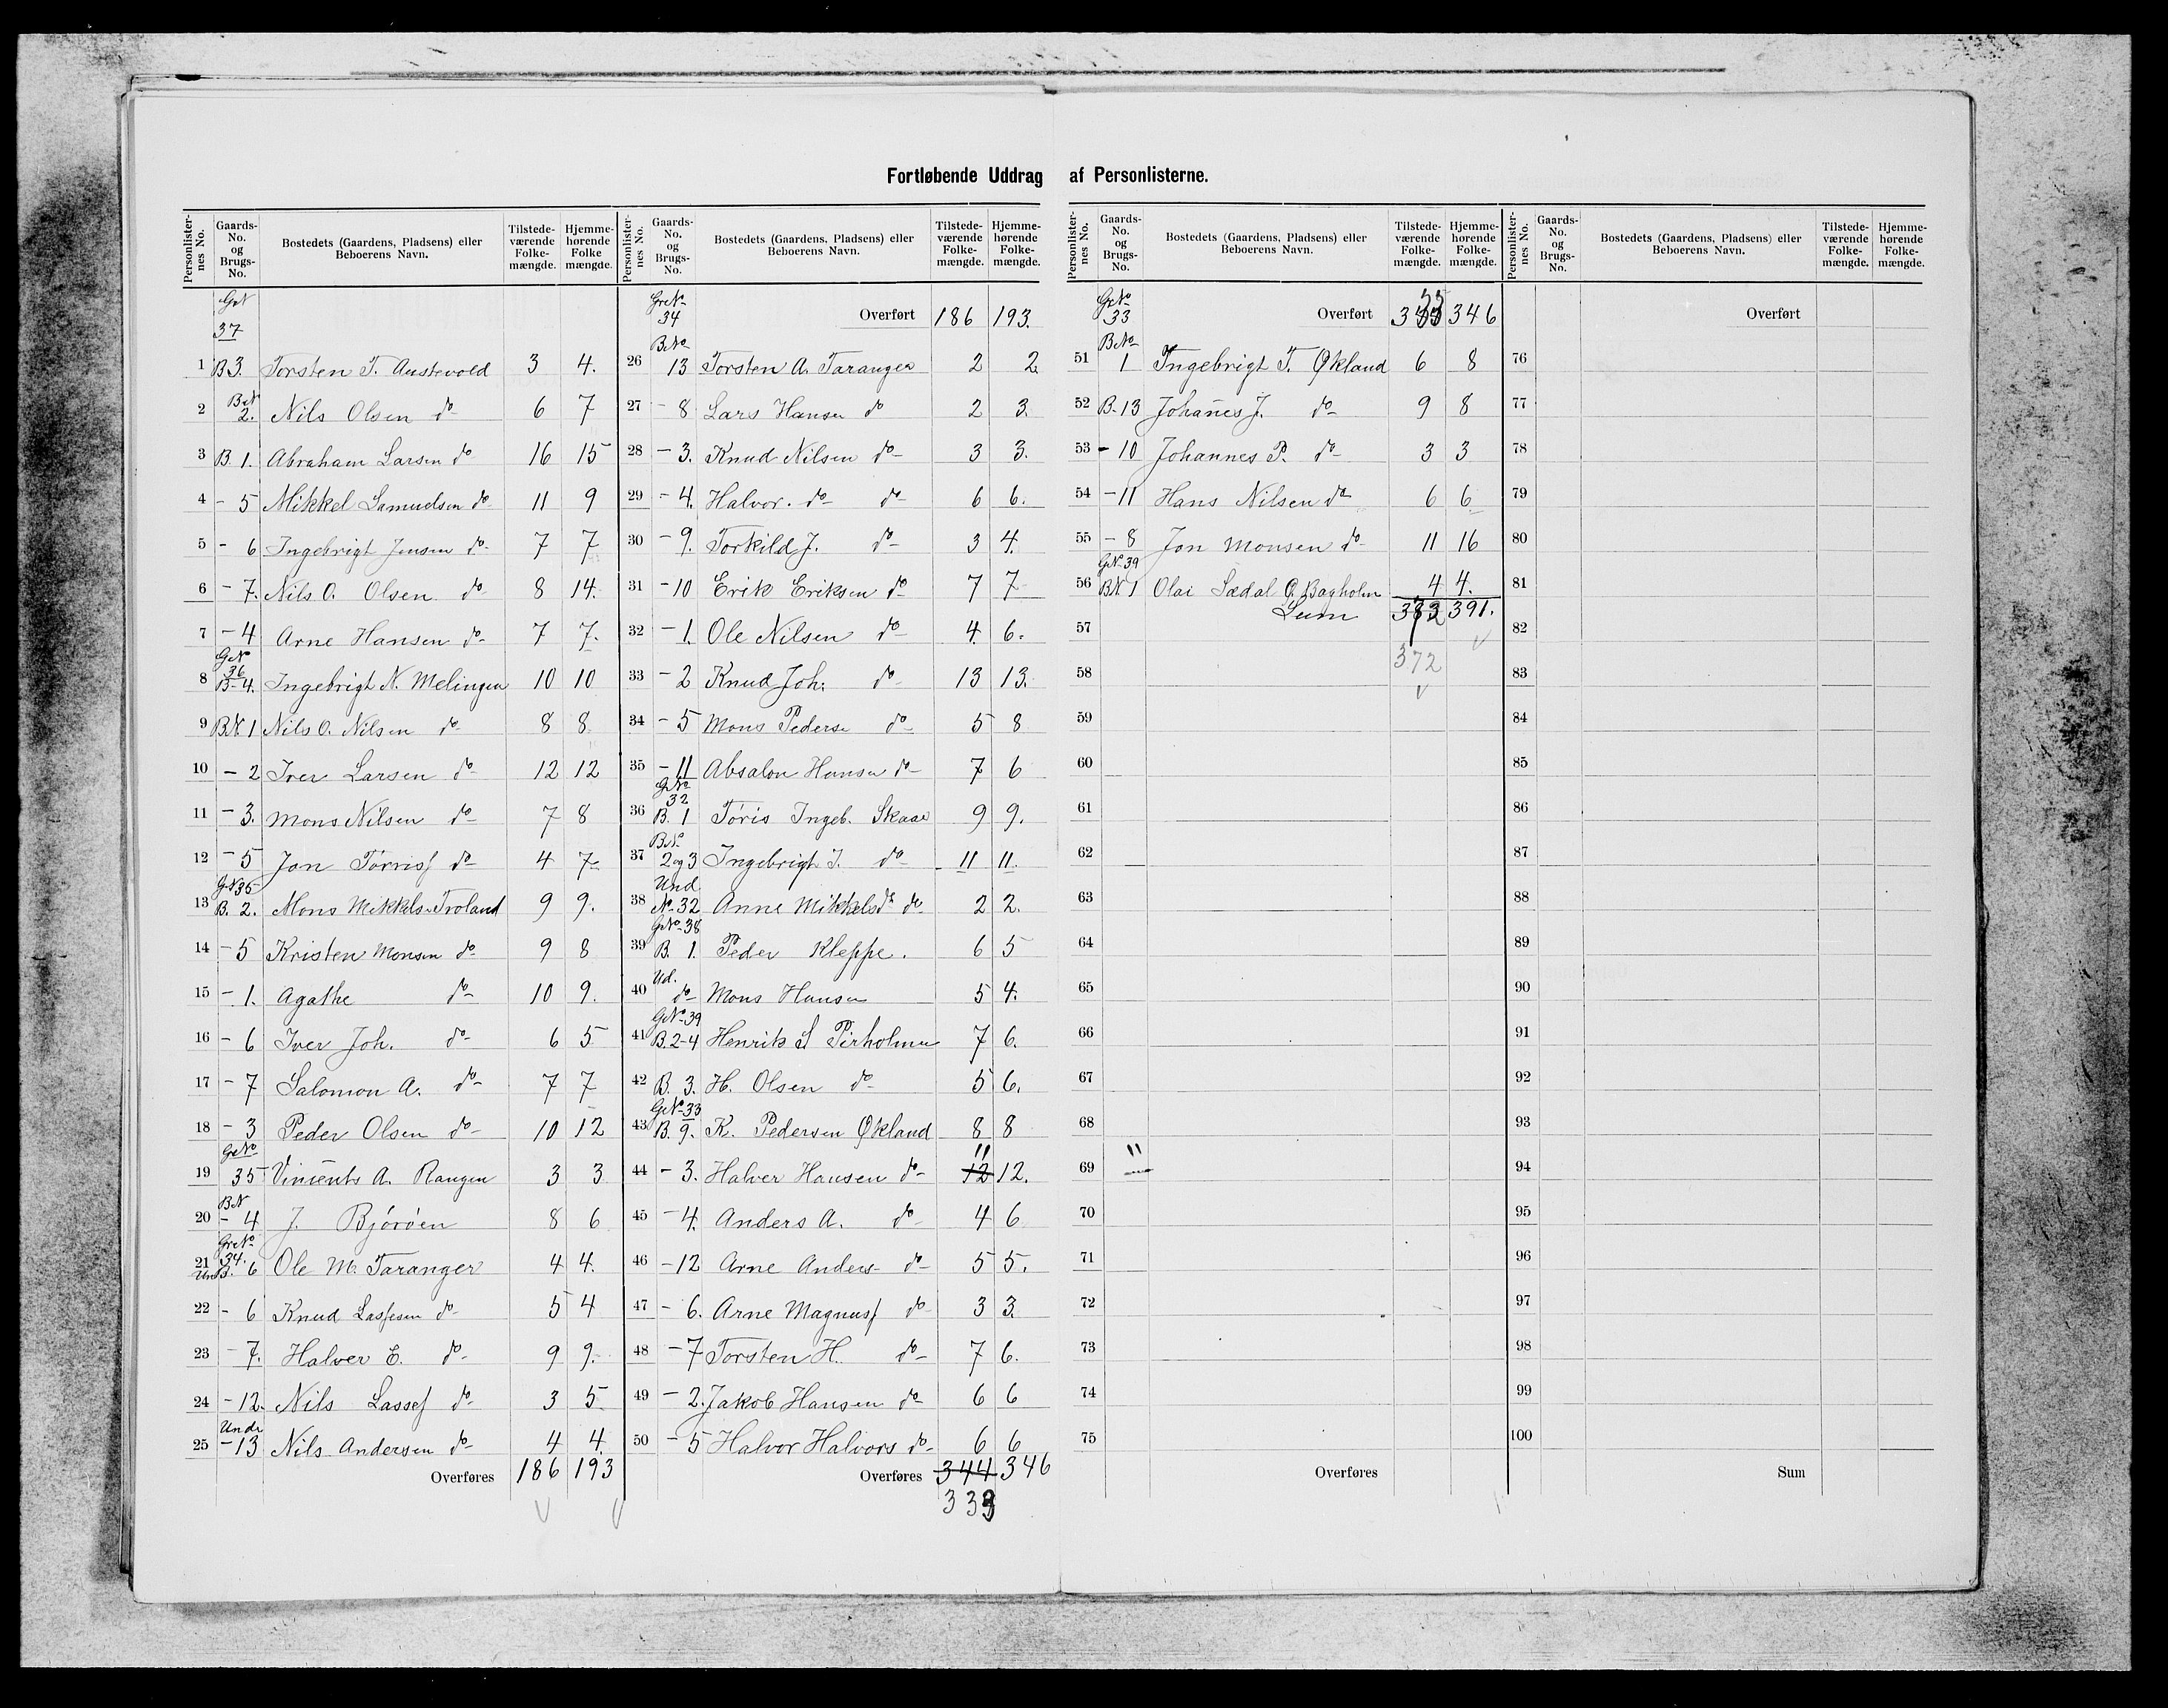 Fortløbende Uddrag af Personlisterne.
Personlister-nes No. Gaards-No. og Brugs-No. Bostedets (Gaardens, Pladsens) eller Beboerens Navn. Tilstede-værende Folke-mængde. Hjemme-hørende Folke mængde.
GrN
37
1 B 3. Torsten T. Austevold 3 4.
2 BrN 2. Nils Olsen do 6 7
3 B. 1. Abraham Larsen do 16 15
4 - 5 Mikkel Samuelsen do 11 9
5 - 6 Ingebrigt Jensen do 7 7
6 - 7. Nils O. Olsen do 8 14.
7 - 4 Arne Hansen do 7 7.
GrNo 36
8 B-4. Ingebrigt N. Melingen 10 10
9 BN 1 Nils O. Nilsen do 8 8
10 - 2 Iver Larsen do 12 12
11 - 3. Mons Nilsen do 7 8
12 - 5 Jon Tørrisf do 4 7
GN 35
13 B. 2. Mons Mikkels. Troland 9 9.
14 - 5 Kristen Monsen do 9 8
15 - 1. Agathe do 10 9.
16 - 6 Iver Joh. do 6 5
17 - 7 Salomon A. do 7 7
18 - 3 Peder Olsen do 10 12
GrNo
19 35 Vincents A. Rangen 3 3
BrN
20 - 4 J. Bjórøen 8 6
GrNo 34.
21 Und B. 6 Ole M. Taranger 4 4.
22 - 6 Knud Lassesen do 5 4
23 - 7. Halver E. do 9 9.
24 - 12. Nils Lassef do 3 5
Undr
25 - 13 Nils Andersen do 4 4.
Overføres 186 193
Personlister-nes No. Gaards-No. og Brugs-No. Bostedets (Gaardens, Pladsens) eller Beboerens Navn. Tilstede-værende Folke-mængde. Hjemme-hørende Folke-mængde.
GrNo 34 Overført 186 193.
BrNo
26 13 Torsten A. Taranger 2 2
27 - 8 Lars Hansen do 2 3.
28 - 3. Knud Nilsen do 3 3.
29 - 4. Halvor. do do 6 6.
30 - 9. Torkild J. do 3 4.
31 - 10 Erik Eriksen do 7 7
32 - 1. Ole Nilsen do 4 6.
33 - 2 Knud Joh. do 13 13.
34 - 5 Mons Pederse do 5 8
35 - 11 Absalon Hansen do 7 6
GNo 32
36 B. 1 Tøris Ingeb. Skaar 9 9.
BrN.
37 2 og 3 Ingebrigt I. do 11 11.
Und
38 No-32 Anne Mikkelsdr do 2 2.
GrNo-38
39 B. 1. Peder Kleppe. 6 5
Ud.
40 do Mons Hansen 5 4.
GrNo-39
41 B. 2-4 Henrik S. Pirholmen 7 6.
42 B. 3. H. Olsen do 5 6.
GrNo-33
43 B. 9. K. Pedersen Økland 8 8
11
44 - 3. Halver Hansen do 12 12.
45 - 4. Anders A. do 4 6
46 - 12 Arne Anders- do 5 5.
47 - 6. Arne Magnusf do 3 3.
48 - 7 Torsten H. do 7 6.
49 - 2. Jakob Hansen do 6 6
50 - 5 Halvor Halvors do 6 6
Overføres 344 346
333
Personlister-nes No. Gaards-No. og Brugs-No. Bostedets (Gaardens, Pladsens) eller Beboerens Navn. Tilstede-værende Folke-mængde. Hjemme-hørende Folke-mængde.
GrNo 33 Overført 333 346
BrNo
51 1 Ingebrigt T. Økland 6 8
52 B-13 Johañes J. do 9 8
53 - 10 Johannes P. do 3 3
54 - 11 Hans Nilsen do 6 6
55 - 8 Jon Monsen do 11 16
GrN-39
56 BN 1 Olai Sædal Bagholm 4 4.
Sum 372 391.
372
57
58
59
60
61
62
63
64
65
66
67
68
69 "
70
71
72
73
74
75
Overføres
Personlister-nes No. Gaards-No. og Brugs-No. Bostedets (Gaardens, Pladsens) eller Beboerens Navn. Tilstede-værende Folke-mængde. Hjemme-hørende Folke-mængde.
Overført
76
77
78
79
80
81
82
83
84
85
86
87
88
89
90
91
92
93
94
95
96
97
98
99
100
Sum